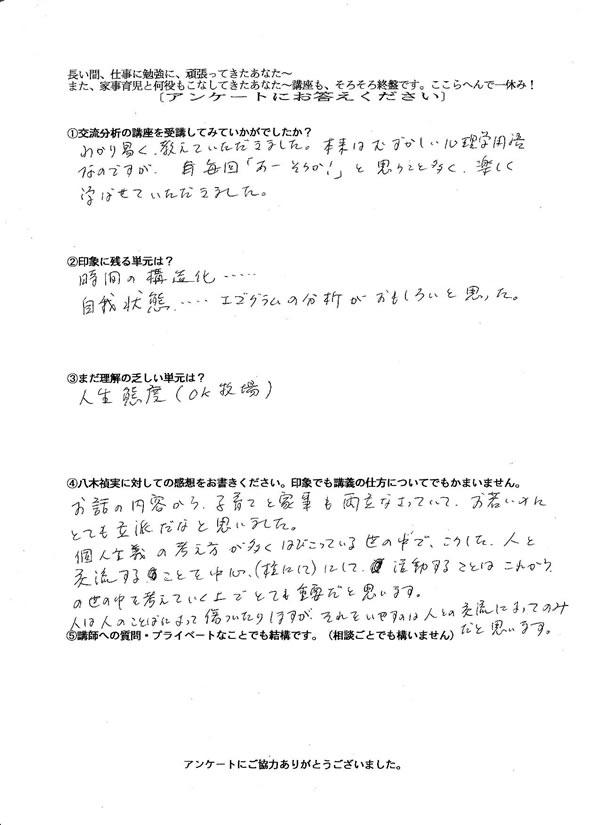 長い間、仕事に勉強に、頑張ってきたあなた～
また、家事育児と何役もこなしてきたあなた～講座も、そろそろ終盤です。ここらへんで一休み！
〔アンケートにお答えください〕
①交流分析の講座を受講してみていかがでしたか？
わかり易く、教えていただきました。本来はむずかしい心理学用語
なのですが、毎回「あーそうか！」と思うこと多く、楽しく
学ばせていただきました。
②印象に残る単元は？
時間の構造化……
自我状態.….. エゴグラムの分析がおもしろいと思った。
③まだ理解の乏しい単元は？
人生態度(OK牧場)
④八木禎実に対しての感想をお書きください。印象でも講義の仕方についてでもかまいません。
お話の内容から、子育てと家事も両立なさっていて、お若いのに
とても立派だなと思いました。
個人主義の考え方が多くはびこっている世の中で、こうした、人と
交流することを中心、(柱にして)にして、活動することはこれから
の世の中を考えていく上でとても重要だと思います。
人は人のことばによって傷ついたりしますが、それをいやすのは人との交流によってのみ
だと思います。
⑤講師への質問・プライベートなことでも結構です。（相談ごとでも構いません）
アンケートにご協力ありがとうございました。